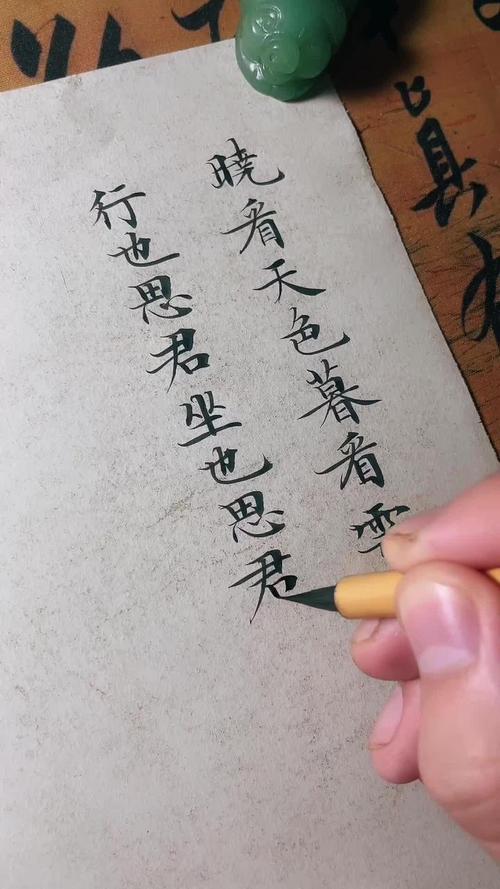 晓看天色暮看雲
行也思君坐也思君